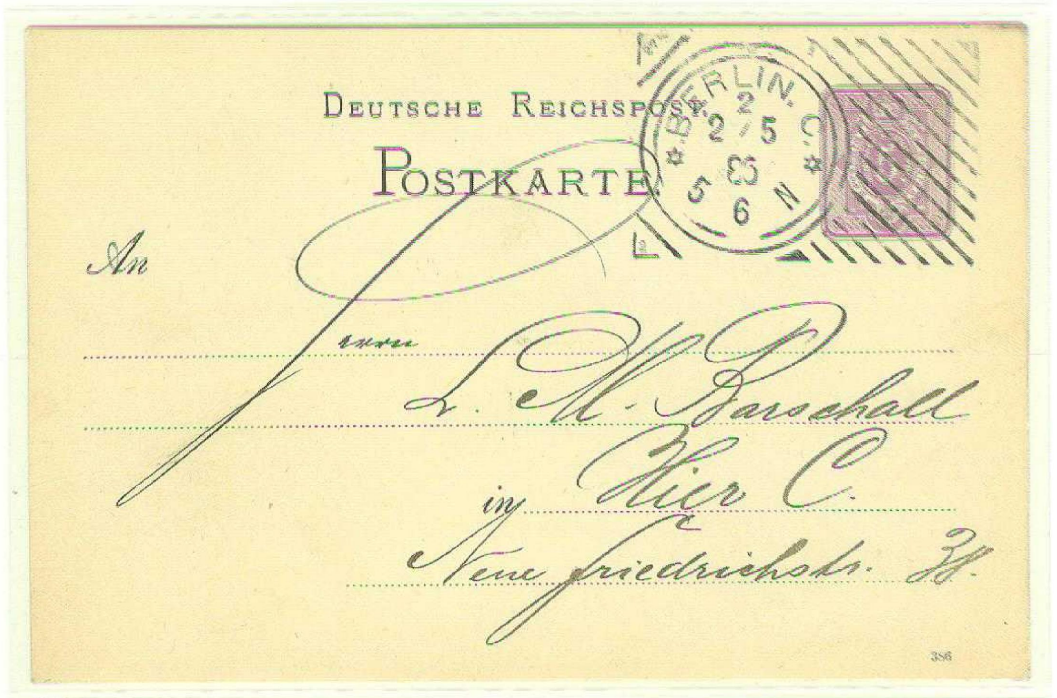 DEUTSCHE REICHSPOST.
POSTKARTE.
BERLIN. C.
2
2/5
86
5 6 N
An
Herrn
L. M. Barschall
in Hier C.
Neue Friedrichstr. 38.
386